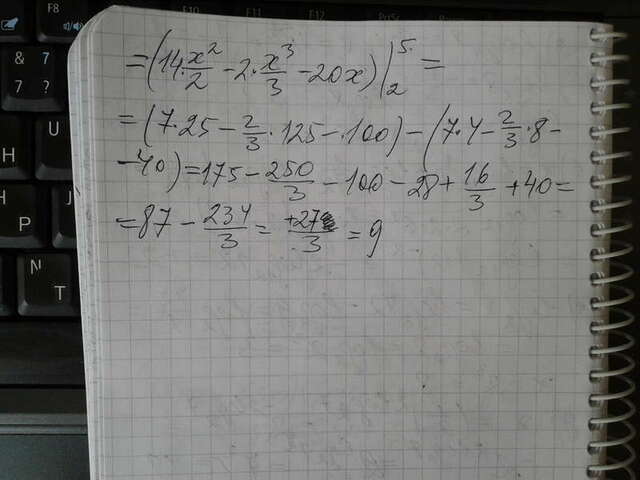 F8
& 7
7 ?
U
H
J
N
T
=(14·x²/2 - 2·x³/3 - 20x)|₂⁵ =
=(7·25 - 2/3·125 - 100) - (7·4 - 2/3·8 -
-40)=175 - 250/3 - 100 - 28 + 16/3 + 40 =
=87 - 234/3 = +27/3 = 9